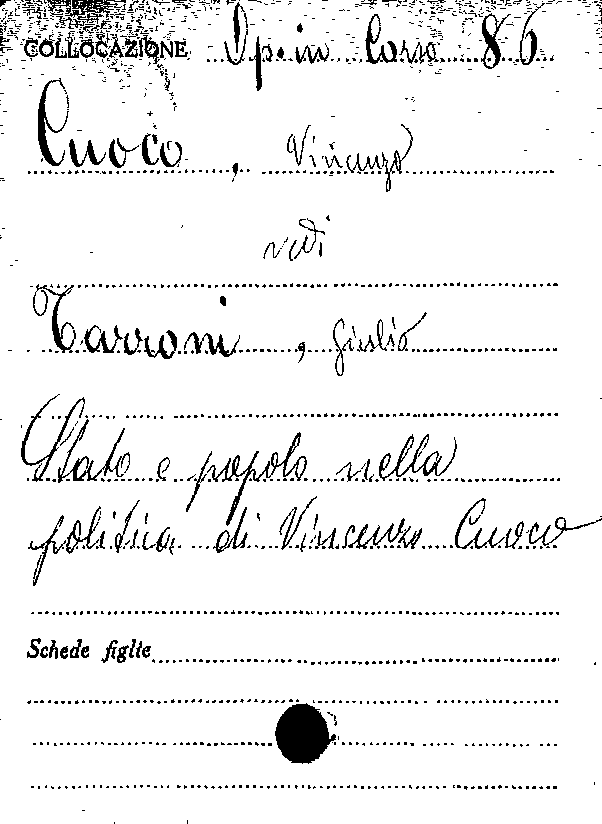 COLLOCAZIONE Op. in Corso 86
Cuoco, Vincenzo
vedi
Tarroni, Giulio
Stato e popolo nella
politica di Vincenzo Cuoco
Schede figlie